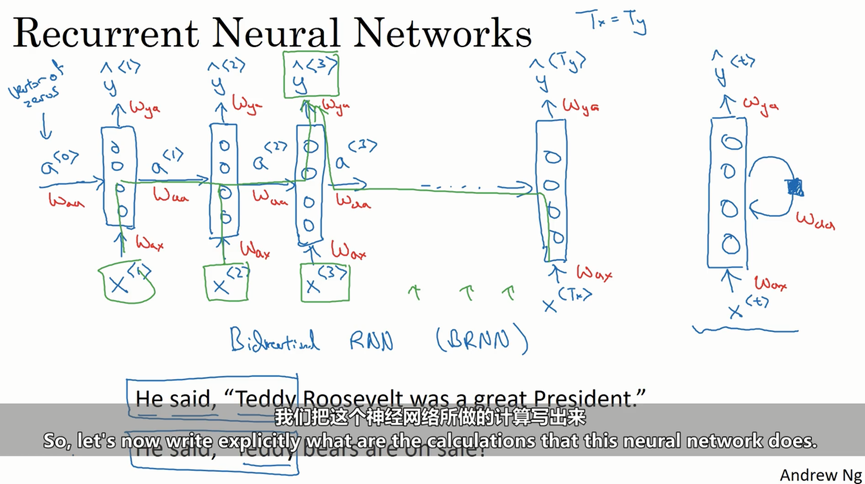 Recurrent Neural Networks
Tx = Ty
vector of zeros
ŷ<1> ŷ<2> ŷ<3> ŷ<Ty> ŷ<t>
Wya Wya Wya Wya Wya
a<0> a<1> a<2> a<3> .....
Waa Waa Waa Waa Waa
Wax Wax Wax Wax Wax
x<1> x<2> x<3> x<Tx> x<t>
Bidirectional RNN (BRNN)
He said, “Teddy Roosevelt was a great President.”
我们把这个神经网络所做的计算写出来
So, let's now write explicitly what are the calculations that this neural network does.
He said, “Teddy bears are on sale!”
Andrew Ng